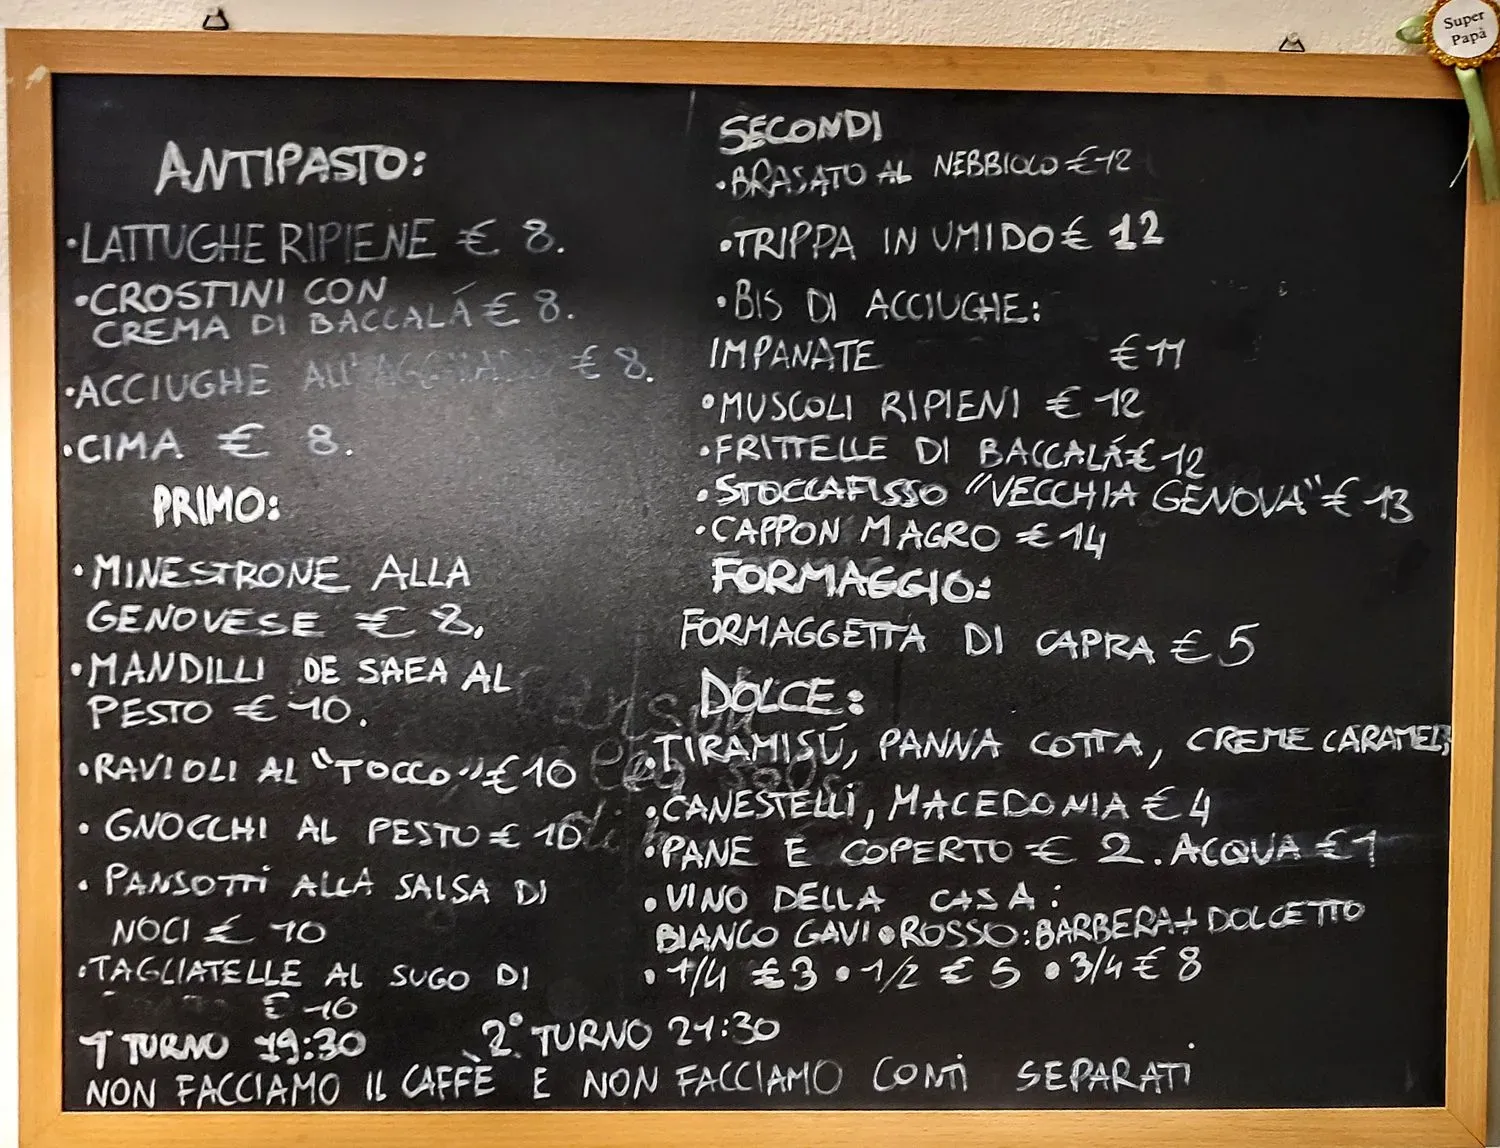 Super
Papà
ANTIPASTO:
•LATTUGHE RIPIENE € 8.
•CROSTINI CON
CREMA DI BACCALÁ € 8.
•ACCIUGHE ALL' € 8.
•CIMA € 8.
PRIMO:
•MINESTRONE ALLA
GENOVESE € 8.
•MANDILLI DE SAEA AL
PESTO € 10.
•RAVIOLI AL "TOCCO" € 10
•GNOCCHI AL PESTO € 10
•PANSOTTI ALLA SALSA DI
NOCI € 10
•TAGLIATELLE AL SUGO DI
€ 10
SECONDI
•BRASATO AL NEBBIOLO € 12
•TRIPPA IN UMIDO € 12
•BIS DI ACCIUGHE:
IMPANATE € 11
•MUSCOLI RIPIENI € 12
•FRITTELLE DI BACCALÁ € 12
•STOCCAFISSO "VECCHIA GENOVA" € 13
•CAPPON MAGRO € 14
FORMAGGIO:
FORMAGGETTA DI CAPRA € 5
DOLCE:
•TIRAMISÚ, PANNA COTTA, CREME CARAMEL,
•CANESTELLI, MACEDONIA € 4
•PANE E COPERTO € 2. ACQUA € 1
•VINO DELLA CASA:
BIANCO GAVI • ROSSO: BARBERA + DOLCETTO
•1/4 € 3 • 1/2 € 5 • 3/4 € 8
1° TURNO 19:30 2° TURNO 21:30
NON FACCIAMO IL CAFFÈ E NON FACCIAMO CONTI SEPARATI